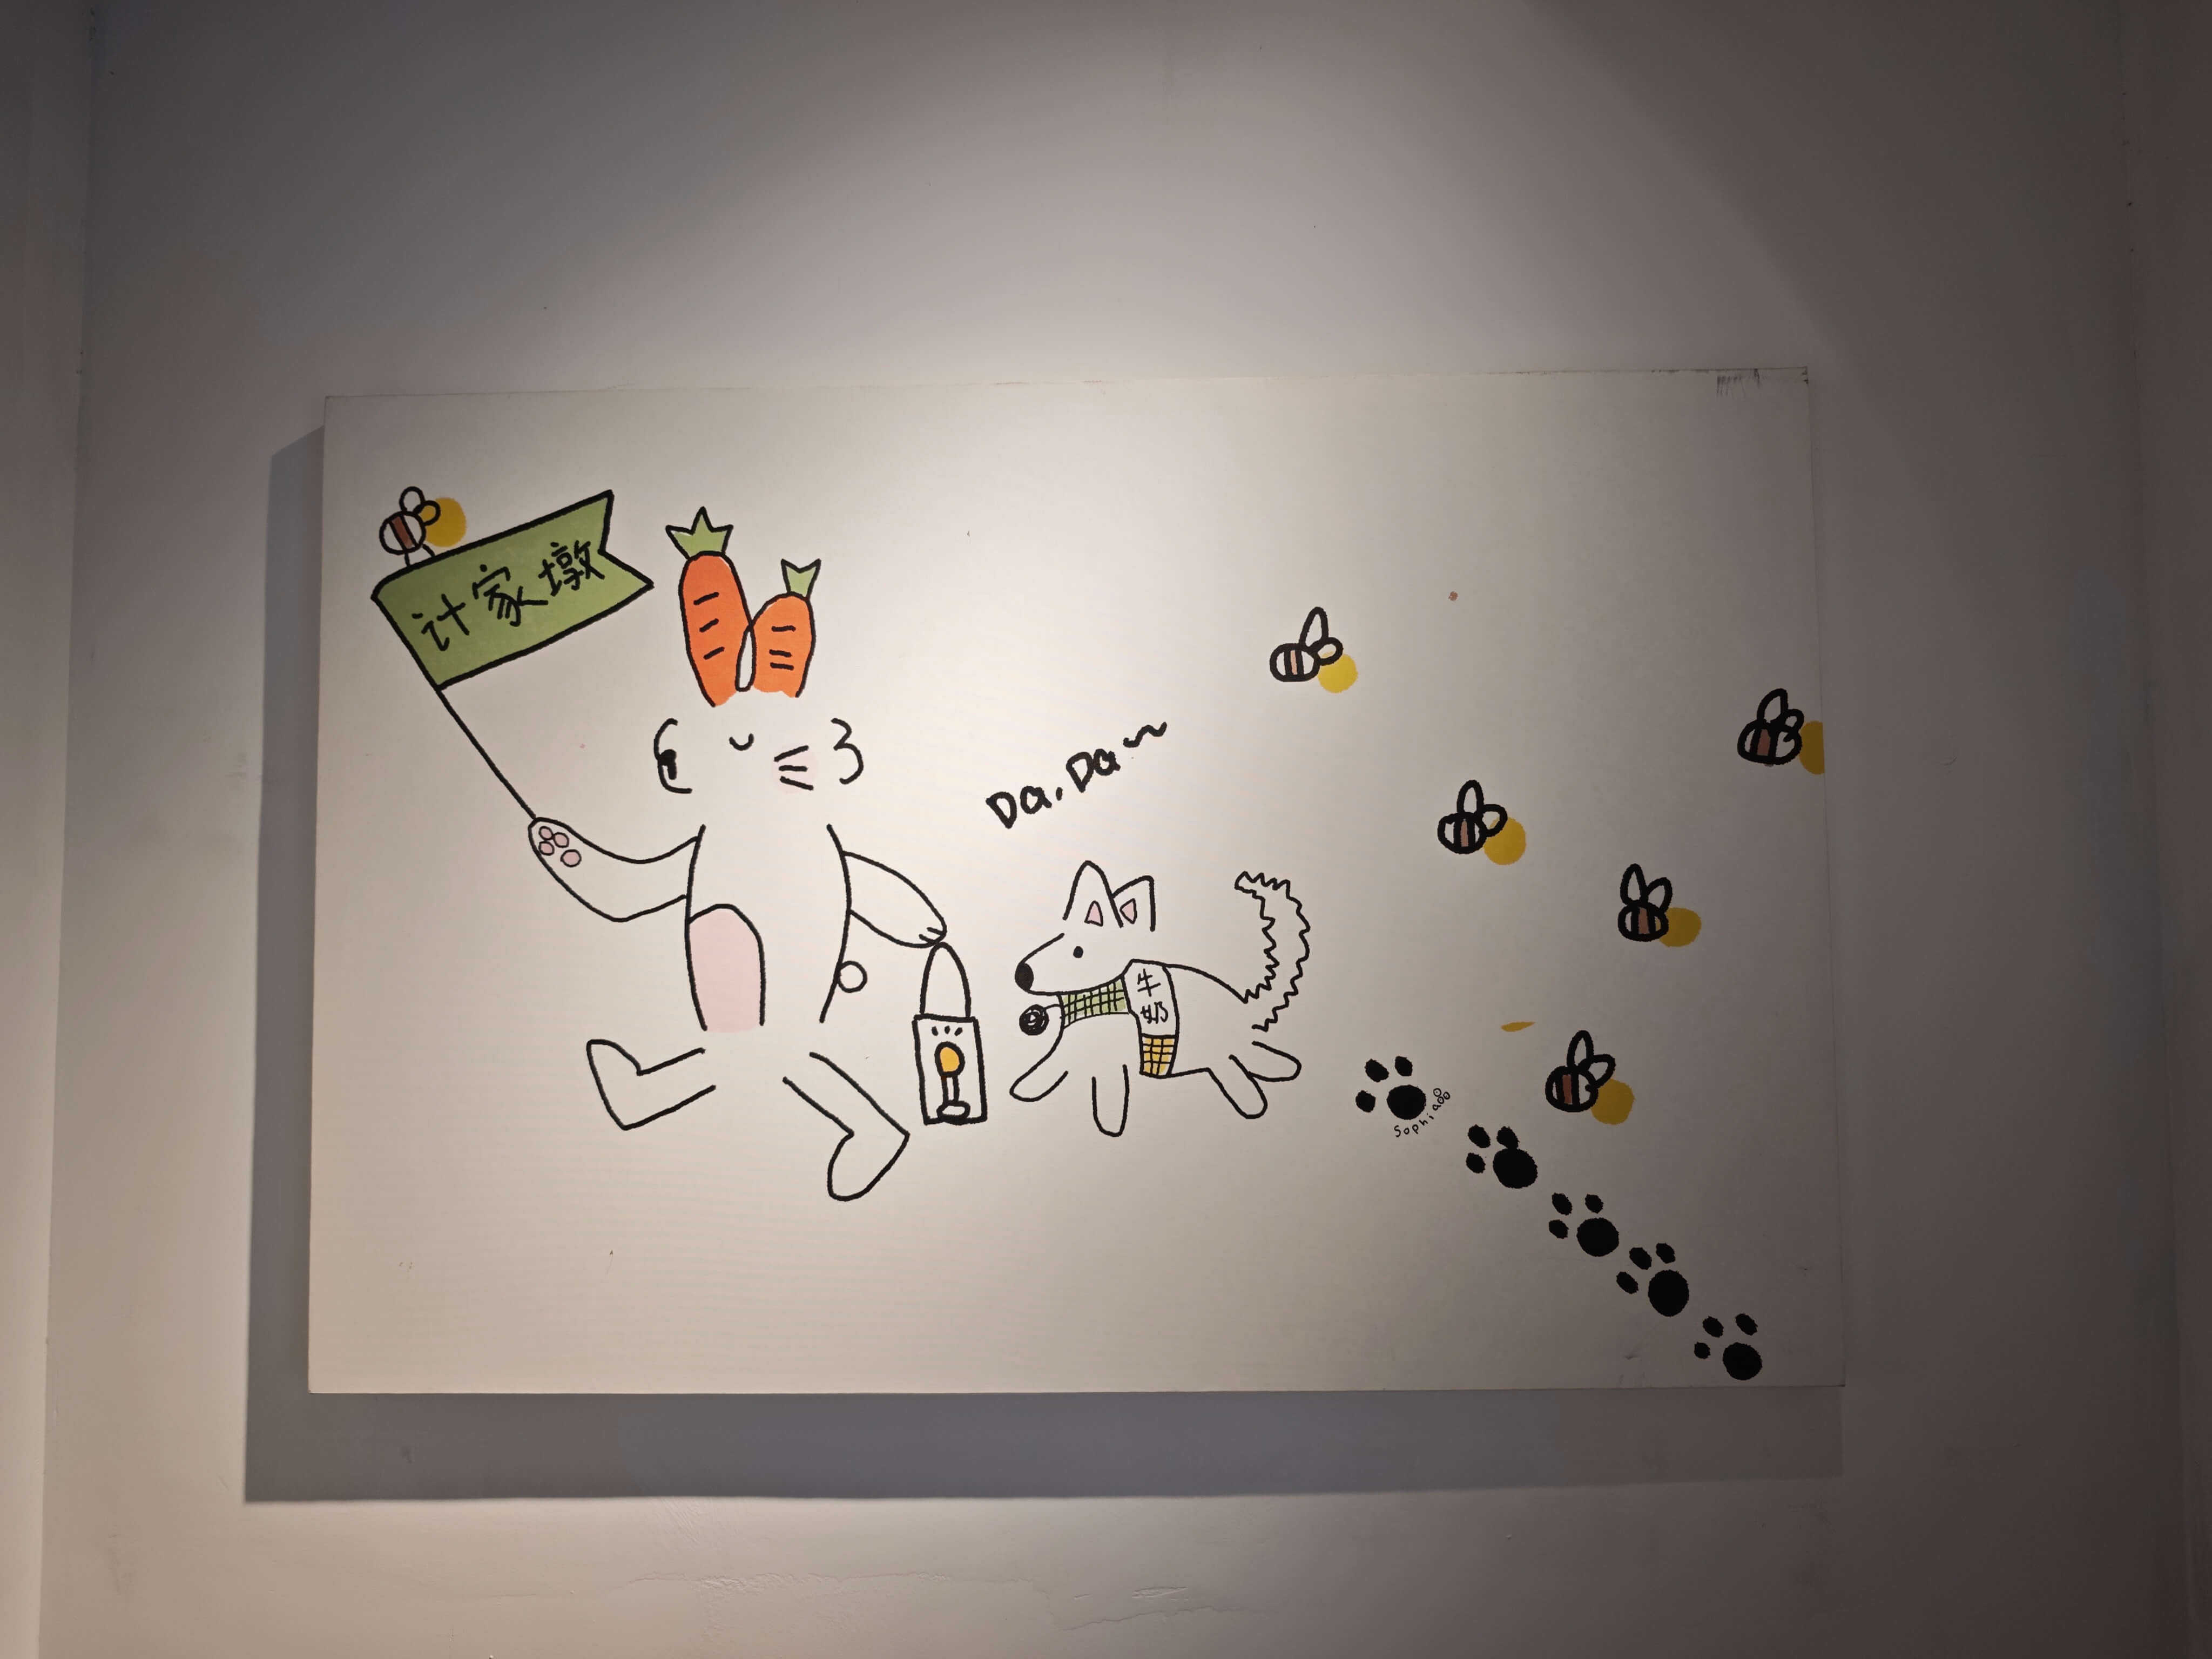 计家墩
Da.Da~
牛
奶
Sophia